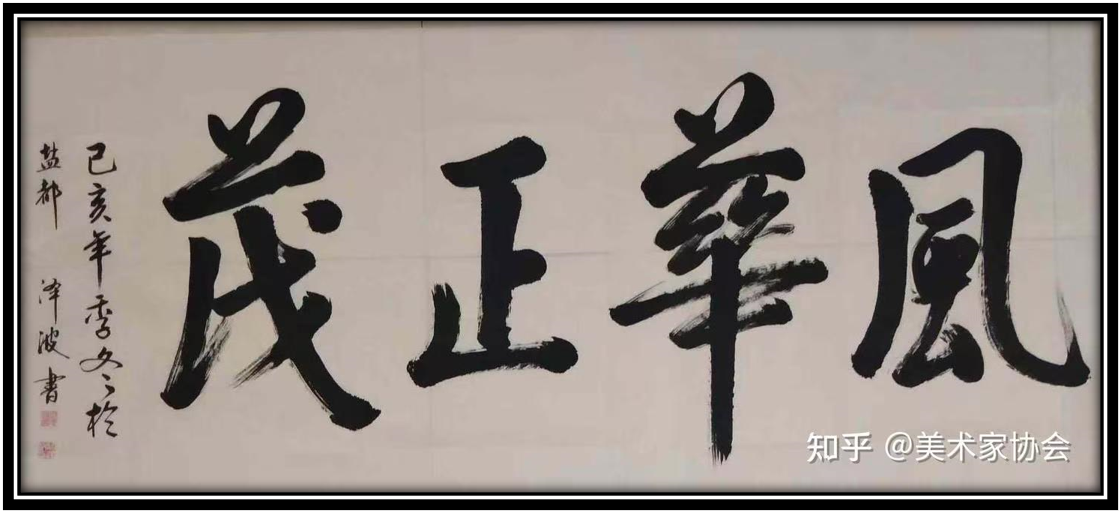 風華正茂
己亥年季冬於
盐都 泽波書
知乎 @美术家协会